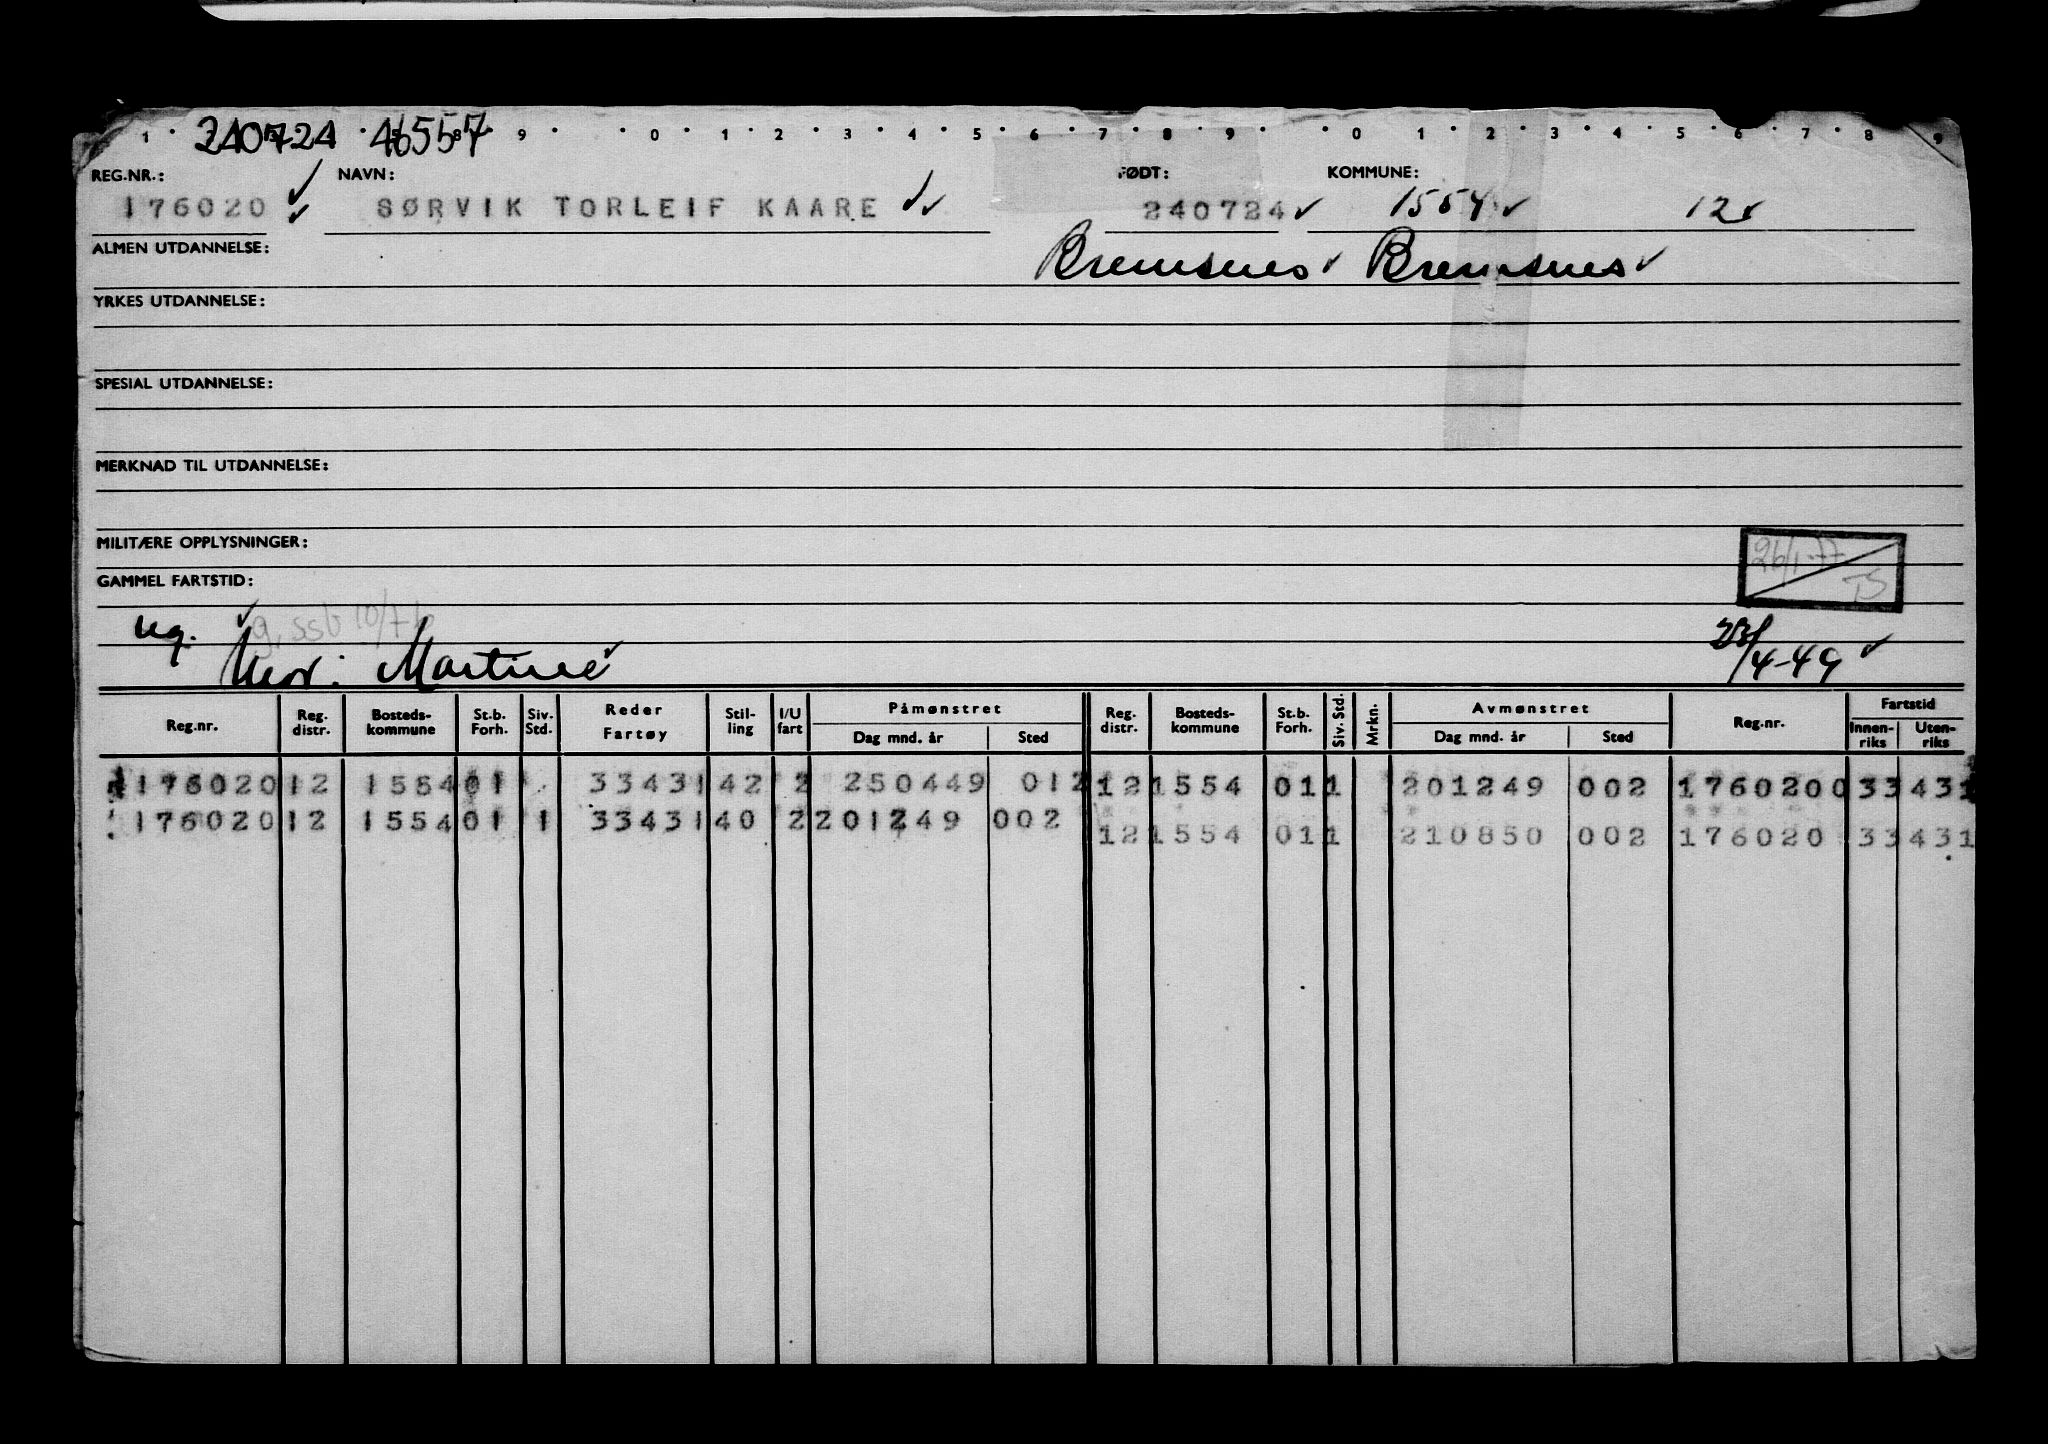 1 240724 46557 9 0 1 2 3 4 5 6 7 8 9 0 1 2 3 4 5 6 7 8 9
REG.NR.: NAVN: FØDT: KOMMUNE:
176020 SØRVIK TORLEIF KAARE 240724 1554 12
ALMEN UTDANNELSE: Bremsnes Bremsnes
YRKES UTDANNELSE:
SPESIAL UTDANNELSE:
MERKNAD TIL UTDANNELSE:
MILITÆRE OPPLYSNINGER:
26/1-77 TS
GAMMEL FARTSTID:
ug. g. ssb 10/7
Mor: Martine 23/4-49
Reg.nr. Reg. distr. Bosteds-kommune St.b. Forh. Siv. Std. Reder Fartøy Stil-ling I/U fart Påmønstret Dag mnd. år Sted Reg. distr. Bosteds-kommune St.b. Forh. Siv. Std. Mrkn. Avmønstret Dag mnd. år Sted Reg.nr. Fartstid Innen-riks Uten-riks
176020 12 1554 01 33431 42 2 250449 012 12 1554 01 1 201249 002 176020 0 33 431
176020 12 1554 01 1 33431 40 2 201249 002 12 1554 01 1 210850 002 176020 33 431